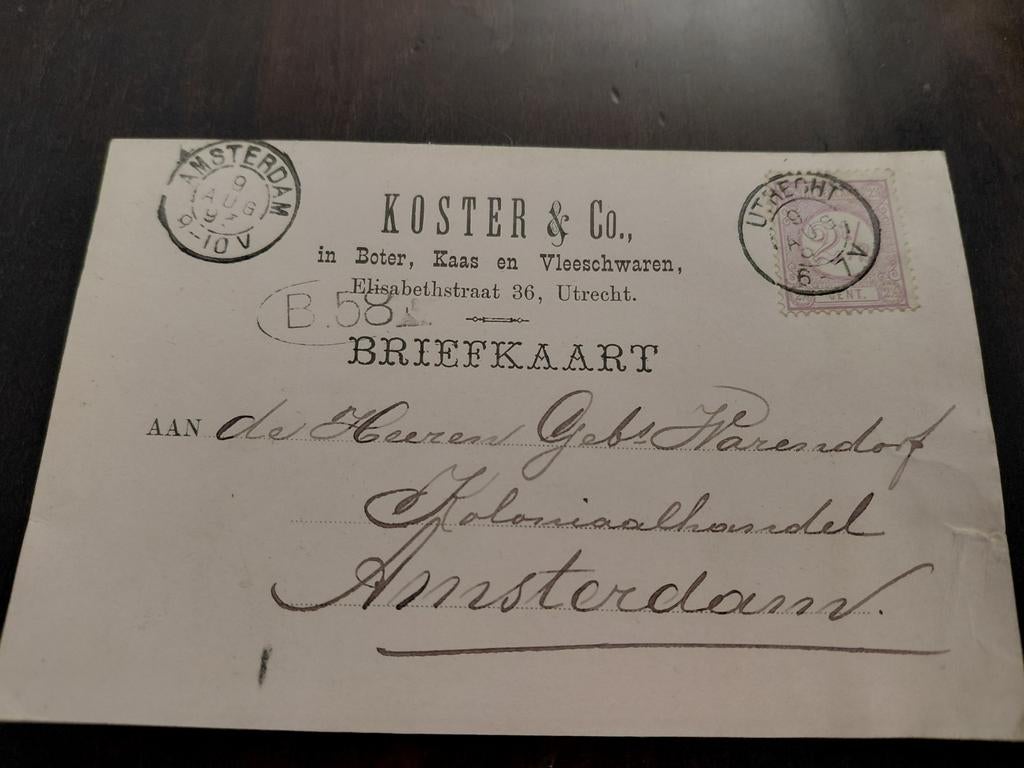 AMSTERDAM
9
AUG
97
9-10V
KOSTER & Co.,
in Boter, Kaas en Vleeschwaren,
Elisabethstraat 36, Utrecht.
B.58
BRIEFKAART
UTRECHT
6-7V
2½
CENT.
AAN de Heeren Gebs Warendorf
Koloniaalhandel
Amsterdam.